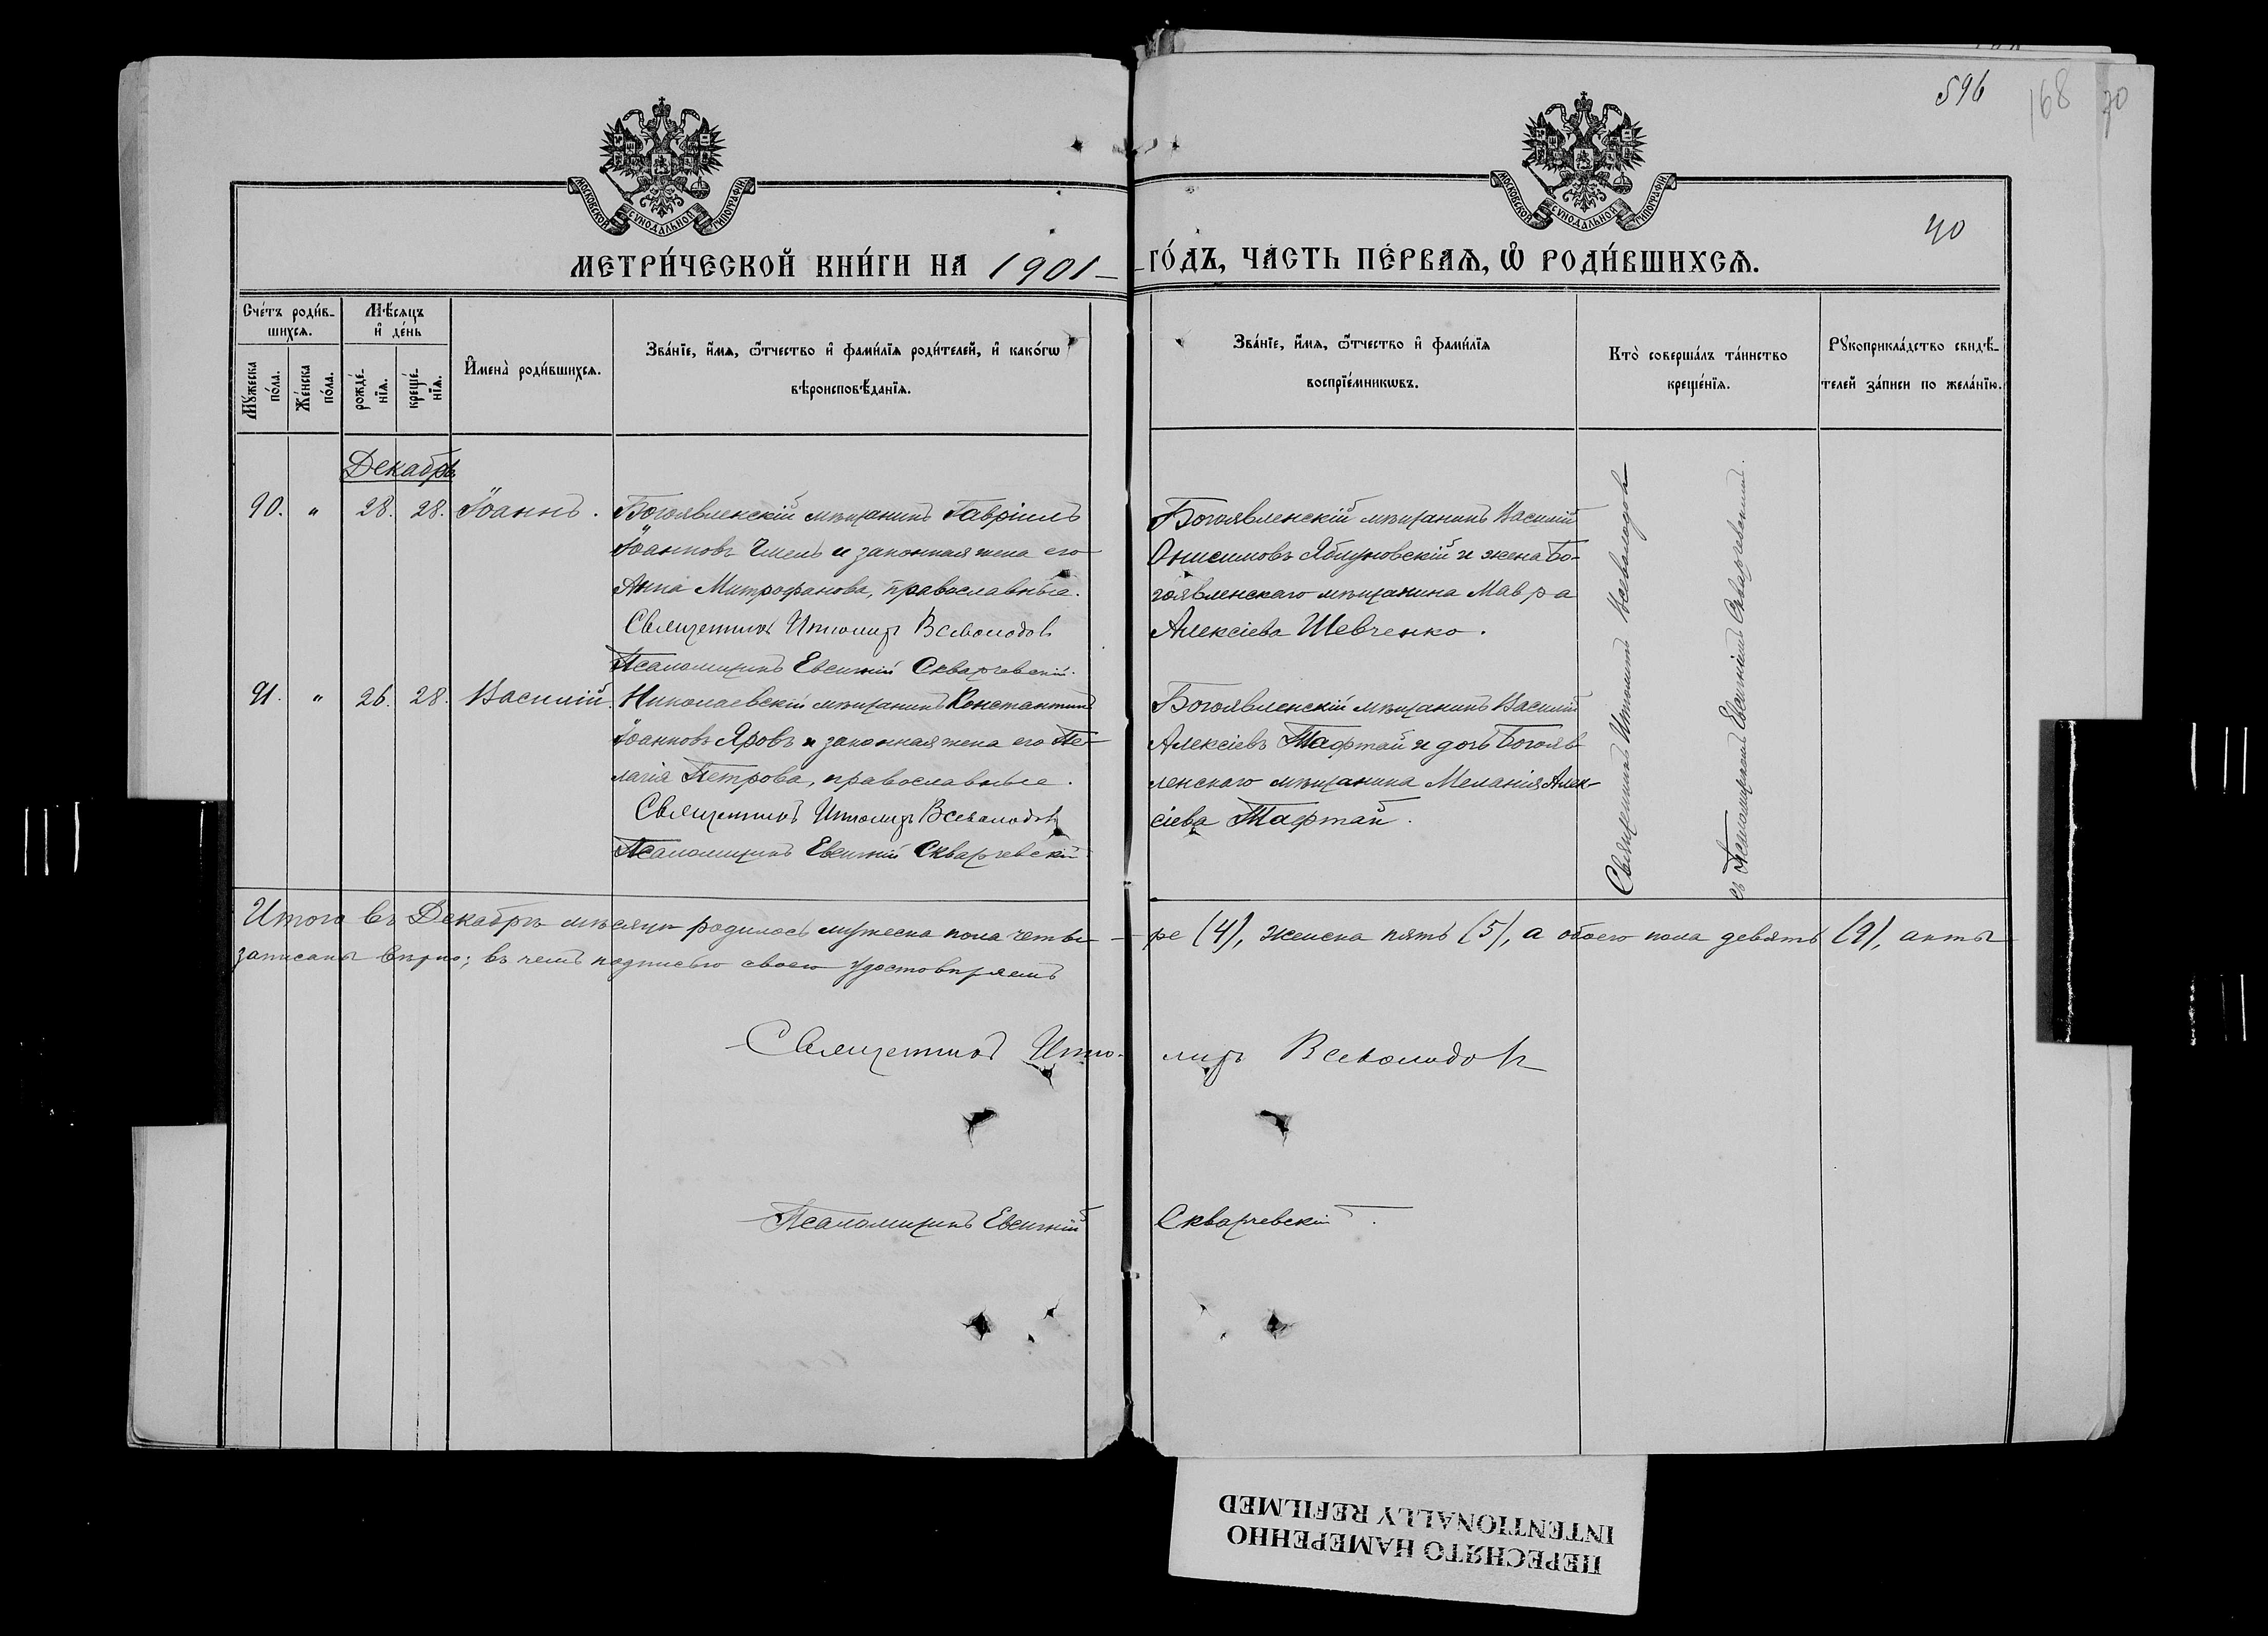 596
168
70
МОСКОВСКОЙ СѴНОДАЛЬНОЙ ТИПОГРАФІИ
МОСКОВСКОЙ СѴНОДАЛЬНОЙ ТИПОГРАФІИ
40
МЕТРИ́ЧЕСКОЙ КНИ́ГИ НА 1901 ГО́ДЪ, ЧА́СТЬ ПЕ́РВАѦ, Ѽ РОДИ́ВШИХСѦ.
Сче́тъ роди́в-
шихсѧ.
Мꙋ́жеска по́ла.
Же́нска по́ла.
Мѣ́сѧцъ
и҆ де́нь
рожде́-
нїѧ.
креще́-
нїѧ.
И҆мена̀ роди́вшихсѧ.
Зва́нїе, и҆́мѧ, ѻ҆́тчество и҆ фами́лїѧ роди́телей, и҆ како́гѡ
вѣроисповѣ́данїѧ.
Зва́нїе, и҆́мѧ, ѻ҆́тчество и҆ фами́лїѧ
воспрїе́мникѡвъ.
Кто̀ соверша́лъ та́инство
креще́нїѧ.
Рꙋкоприкла́дство свидѣ́-
телей за́писи по жела́нїю.
Декабрь
90. " 28. 28. Іоаннъ.
Богоявленскій мѣщанинъ Гавріилъ
Іоанновъ Чмель и законная жена его
Анна Митрофанова, православные.
Священникъ Всеволодовъ
Псаломщикъ Евгеній Скваржевскій.
Богоявленскій мѣщанинъ Василій
Онисимовъ Яблуновскій и жена Бо-
гоявленскаго мѣщанина Мавра
Алексіева Шевченко.
91. " 26. 28. Василій.
Николаевскій мѣщанинъ Константинъ
Іоанновъ Яровъ и законная жена его Пе-
лагія Петрова, православные.
Священникъ Всеволодовъ
Псаломщикъ Евгеній Скваржевскій
Богоявленскій мѣщанинъ Василій
Алексіевъ Тафтай и дочь Богояв-
ленскаго мѣщанина Меланія Алек-
сіева Тафтай.
Священникъ Всеволодовъ
съ Псаломщикомъ Евгеніемъ Скваржевскимъ.
Итого въ Декабрѣ мѣсяцѣ родилось мужеска пола четы-ре (4), женска пять (5), а обоего пола девять (9), акты
записаны вѣрно; въ чемъ подписью своею удостовѣряемъ
Священникъ Всеволодовъ
Псаломщикъ Евгеній Скваржевскій.
ПЕРЕСНЯТО НАМЕРЕННО
INTENTIONALLY REFILMED